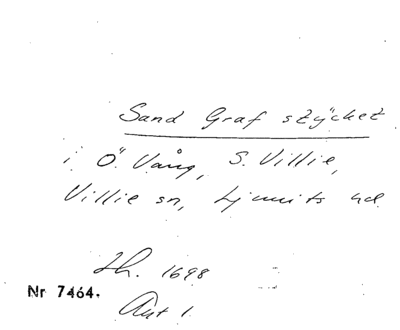 Sand Graf stÿcket
i Ö. Vång, S. Villie,
Villie sn, Ljunits hd
Lh. 1698
Nr 7464.
Aut 1.